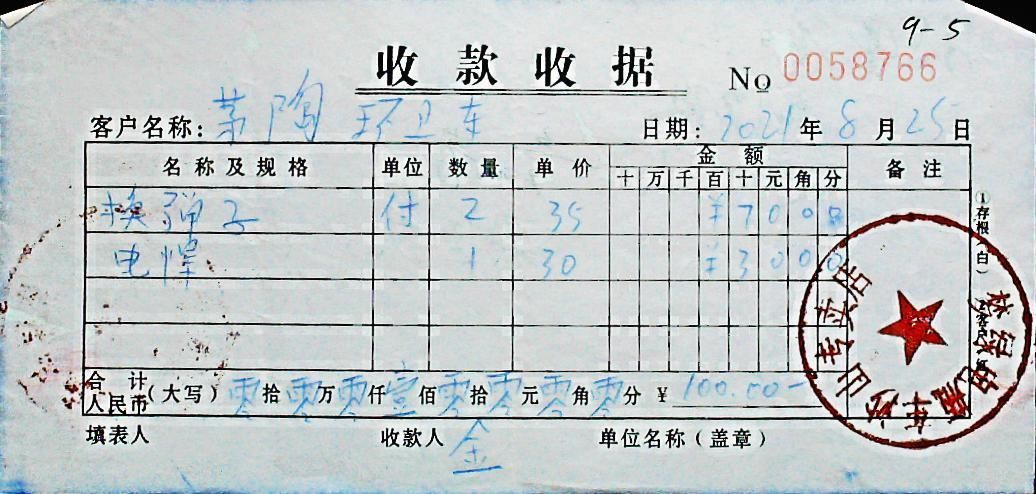 9-5
收款收据 No 0058766
客户名称: 茅陶环卫车 日期: 2021年8月25日
名称及规格 单位 数量 单价 金额 备注
十 万 千 百 十 元 角 分
换弹子 付 2 35 ¥7000
电焊 1 30 ¥3000
合计人民币 (大写) 零拾零万零仟壹佰零拾零元零角零分 ¥ 100.00-
填表人 收款人 金 单位名称(盖章)
①存根(白)
专卖店